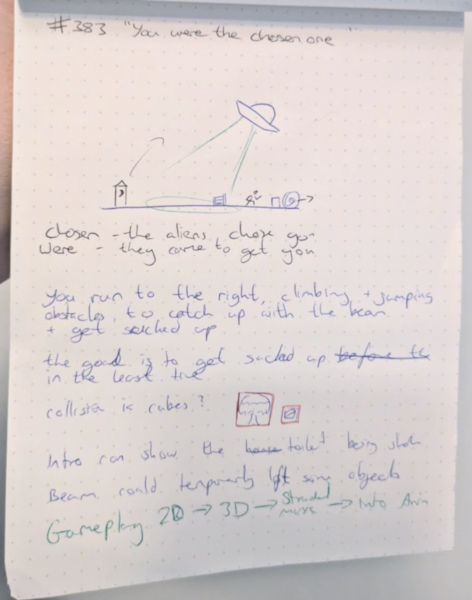 #383 "You were the chosen one"
chosen - the aliens chose you
were - they came to get you
You run to the right, climbing + jumping
obstacles, to catch up with the beam
+ get sucked up
the goal is to get sucked up before the
in the least time
collision is cubes?
Intro can show the house toilet being
Beam could temporarily lift some objects
Gameplay 2D → 3D → → Intro Anim